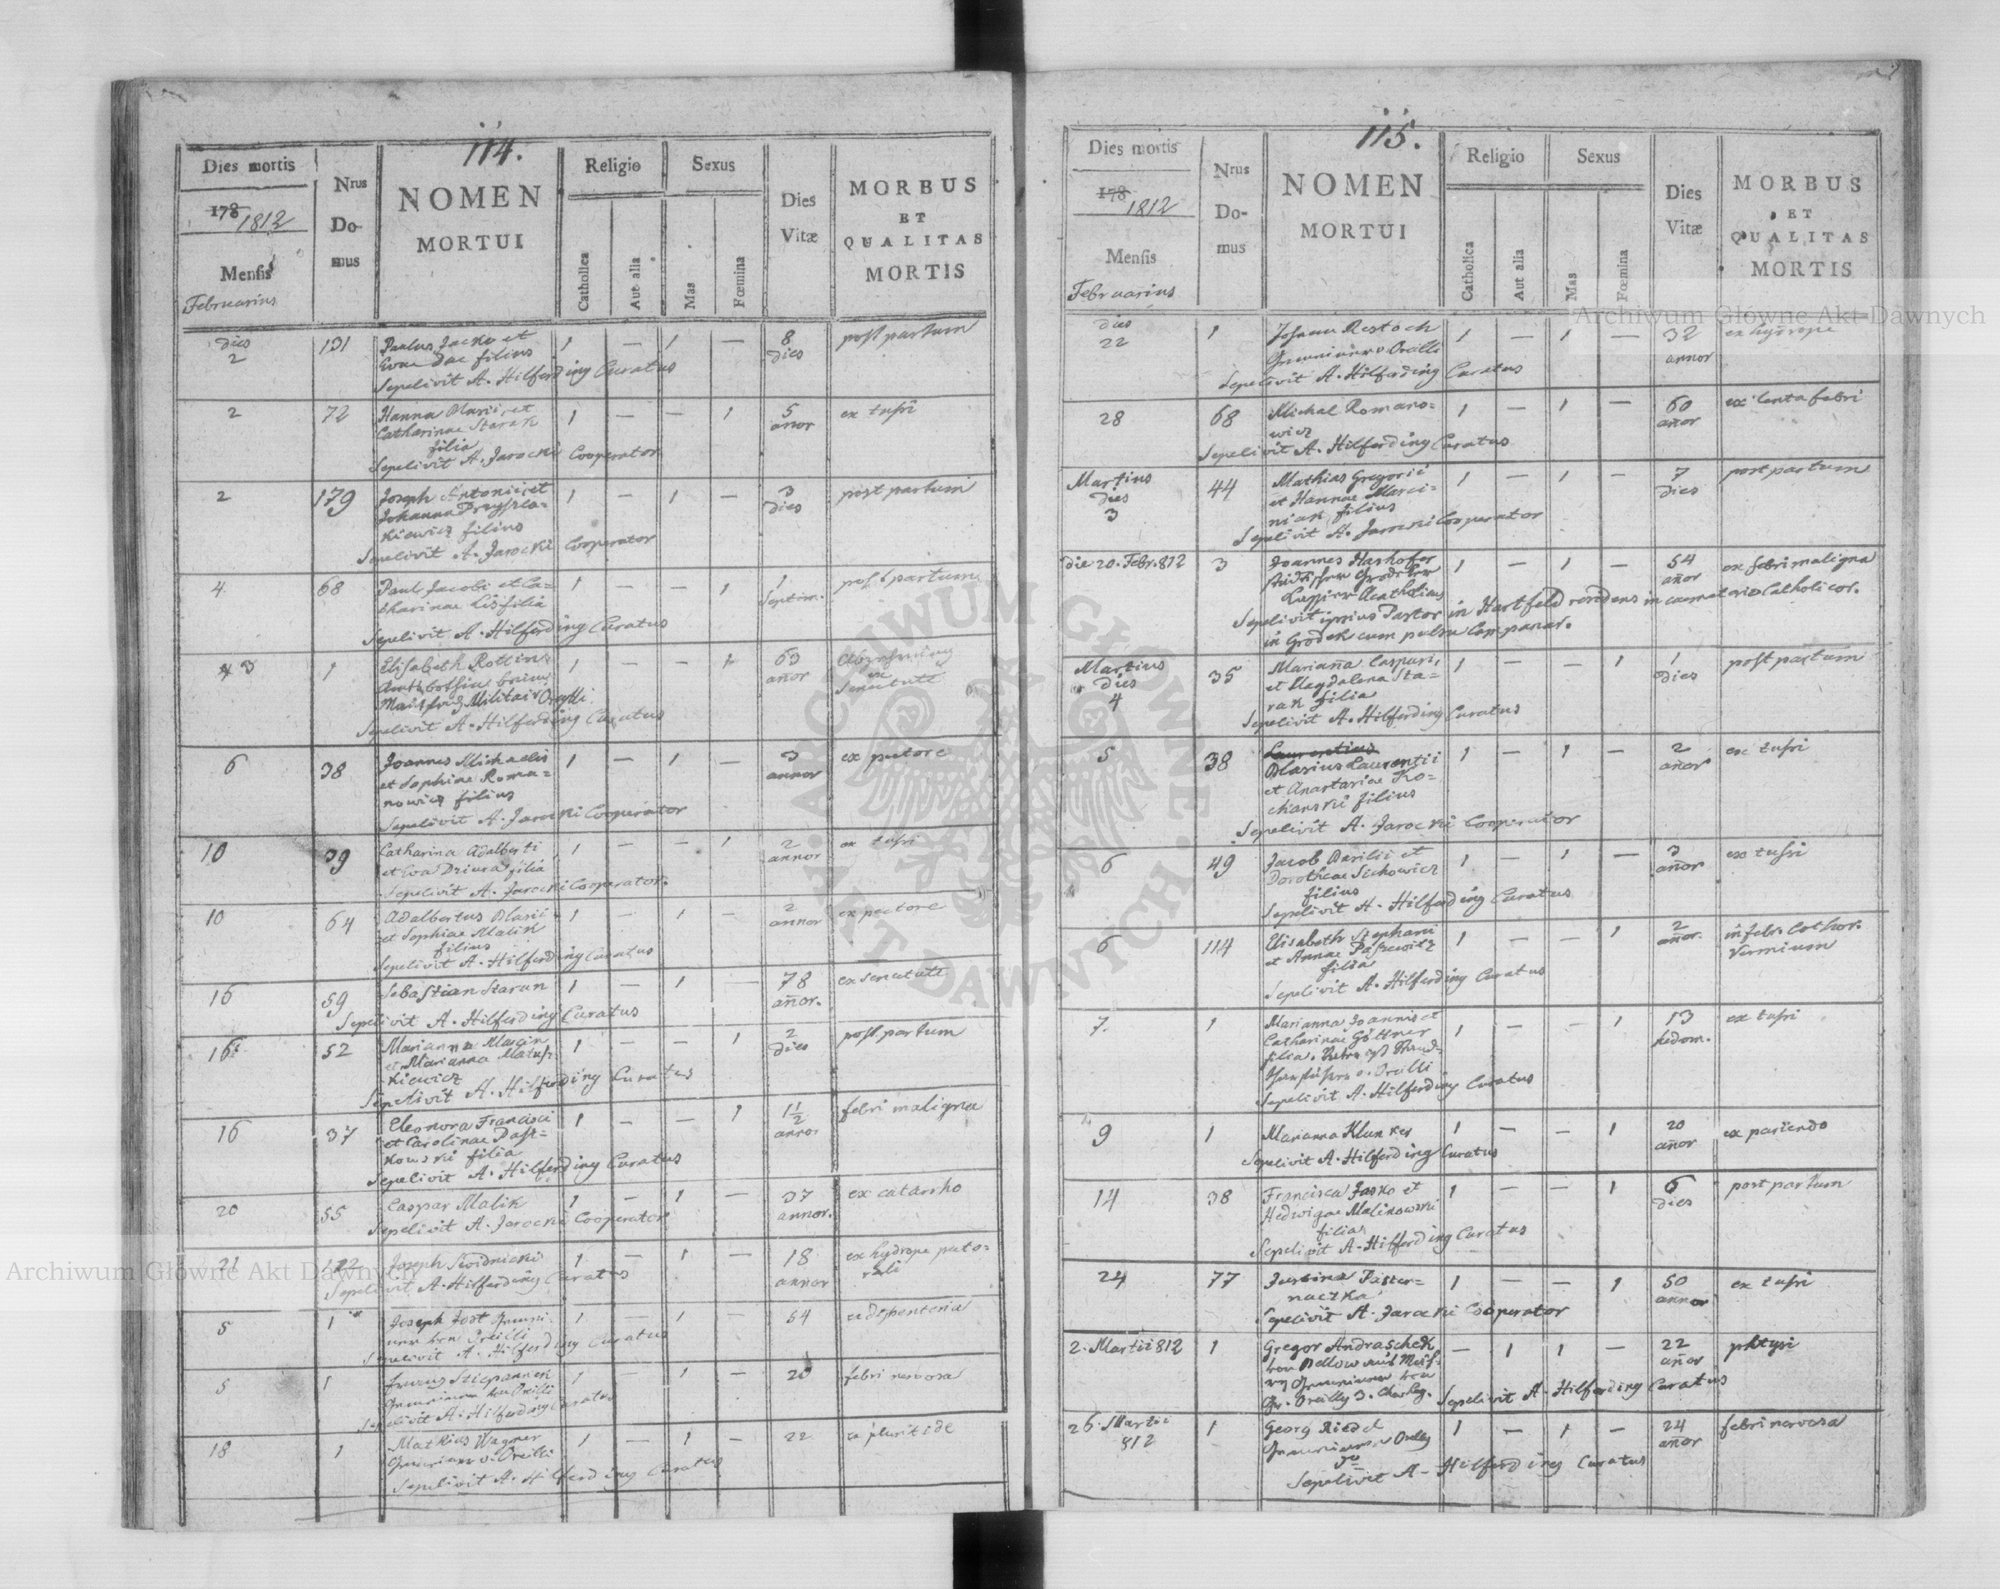 114.
Dies mortis
178 1812
Mensis
Februarius
Nrus
Do-
mus
NOMEN
MORTUI
Religio
Catholica
Aut alia
Sexus
Mas
Fœmina
Dies
Vitæ
MORBUS
ET
QUALITAS
MORTIS
dies
2 131 Paulus Jacko et 1 — 1 — 8 post partum
filius dies
Sepelivit A. Hilferding Curatus
2 72 Hanna Blasii et 1 — — 1 5 ex tussi
Catharinae Starak annor
filia
Sepelivit A. Jarocki Cooperator
2 179 Joseph Antonii et 1 — 1 — 3 post partum
Johanna Przysla- dies
kiewicz filius
Sepelivit A. Jarocki Cooperator
4 68 Paul Jacobi et Ca- 1 — — 1 1 post partum
tharinae Lis filia Septim.
Sepelivit A. Hilferding Curatus
3 1 Elisabeth 1 — — 1 63
annor ex
Militair Senectute
Sepelivit A. Hilferding Curatus
6 38 Joannes Michaelis 1 — 1 — 3 ex pectore
et Sophiae Roma- annor
nowicz filius
Sepelivit A. Jarocki Cooperator
10 39 Catharina Adalberti 1 — — 1 2 ex tussi
et Eva Dziura filia annor
Sepelivit A. Jarocki Cooperator.
10 64 Adalbertus Blasii 1 — 1 — 2 ex pectore
et Sophiae Malik annor
filius
Sepelivit A. Hilferding Curatus
16 59 Sebastian Starun 1 — 1 — 78 ex senectute
annor.
Sepelivit A. Hilferding Curatus
16 52 Marianna Marcin 1 — — 1 2 post partum
et Marianna Matus- dies
kiewicz
Sepelivit A. Hilferding Curatus
16 37 Eleonora Francisci 1 — — 1 1 1/2 febri maligna
et Carolinae Pasz- annor
kowski filia
Sepelivit A. Hilferding Curatus
20 55 Caspar Malik 1 — 1 — 37 ex catarrho
annor.
Sepelivit A. Jarocki Cooperator
21 122 Joseph Swidnicki 1 — 1 — 18 ex hydrope pecto-
annor rali
Sepelivit A. Hilferding Curatus
5 1 Joseph Jost 1 — 1 — 54 ex dysenteria
Sepelivit A. Hilferding Curatus
5 1 1 — 1 — 20 febri nervosa
Sepelivit A. Hilferding Curatus
18 1 Mathias Wagner 1 — 1 — 22 ex pluritide
Sepelivit A. Hilferding Curatus
115.
Dies mortis
178 1812
Mensis
Februarius
Nrus
Do-
mus
NOMEN
MORTUI
Religio
Catholica
Aut alia
Sexus
Mas
Fœmina
Dies
Vitæ
MORBUS
ET
QUALITAS
MORTIS
dies
22 1 Johann Restoch 1 — 1 — 32 ex hydrope
annor
Sepelivit A. Hilferding Curatus
28 68 Michal Romano- 1 — 1 — 60 ex lenta febri
wicz annor
Sepelivit A. Hilferding Curatus
Martius
dies
3 44 Mathias Gregorii 1 — 1 — 7 post partum
et Hannae Marci- dies
niak filius
Sepelivit A. Jarocki Cooperator
die 20. Febr. 812 3 Joannes Hashofer 1 — 1 — 54 ex febri maligna
annor
Sepelivit ipsius Pastor in Hartfeld residens in caemeterio Catholicor.
in Grodek cum pulsu Campanar.
Martius
dies
4 35 Marianna Caspari, 1 — — 1 1 post partum
et Magdalena Sta- dies
rak filia
Sepelivit A. Hilferding Curatus
5 38 Laurentius 1 — 1 — 2 ex tussi
Blasius Laurentii annor
et Anastasiae Ko-
chanski filius
Sepelivit A. Jarocki Cooperator
6 49 Jacob Basilii et 1 — 1 — 3 ex tussi
Dorotheae Sickowicz annor
filius
Sepelivit A. Hilferding Curatus
6 114 Elisabeth Stephani 1 — — 1 2 in febr. Cathar.
et Annae annor. Vermium
filia
Sepelivit A. Hilferding Curatus
7. 1 Marianna Joannis et 1 — — 1 13 ex tussi
Catharinae Göttner hedom.
filia.
Sepelivit A. Hilferding Curatus
9 1 Marianna Klunker 1 — — 1 20 ex pariendo
annor
Sepelivit A. Hilferding Curatus
14 38 Francisca Jasko et 1 — — 1 6 post partum
Hedwigae Malinowski dies
filia
Sepelivit A. Hilferding Curatus
24 77 Justina Paster- 1 — — 1 50 ex tussi
naczka annor
Sepelivit A. Jarocki Cooperator
2. Martii 812 1 Gregor Andraschek — 1 1 — 22 phtysi
annor
Sepelivit A. Hilferding Curatus
26. Martii
812 1 Georg Riedel 1 — 1 — 24 febri nervosa
annor
Sepelivit A. Hilferding Curatus
Archiwum Główne Akt Dawnych
Archiwum Główne Akt Dawnych
ARCHIWUM GŁÓWNE AKT DAWNYCH